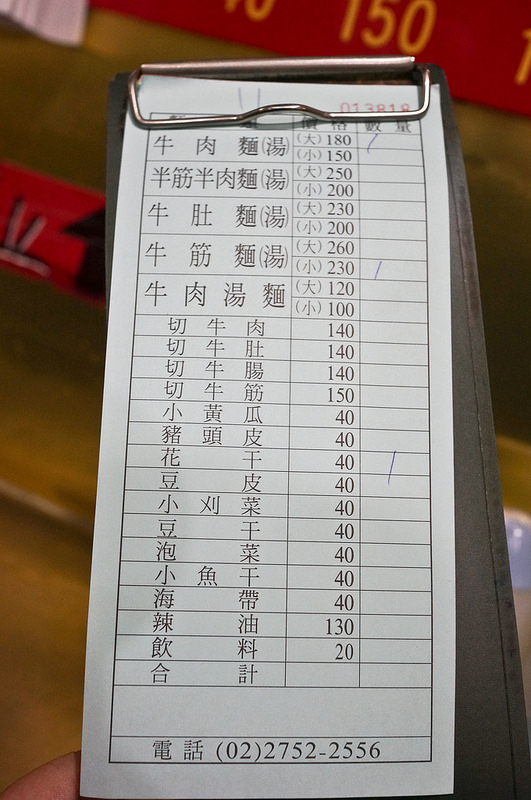 150
013818
價格 數量
牛肉麵(湯) (大) 180
(小) 150
半筋半肉麵(湯) (大) 250
(小) 200
牛肚麵(湯) (大) 230
(小) 200
牛筋麵(湯) (大) 260
(小) 230
牛肉湯麵 (大) 120
(小) 100
切牛肉 140
切牛肚 140
切牛腸 140
切牛筋 150
小黃瓜 40
豬頭皮 40
花干 40
豆皮 40
小刈菜 40
豆干 40
泡菜 40
小魚干 40
海帶 40
辣油 130
飲料 20
合計
電話 (02)2752-2556